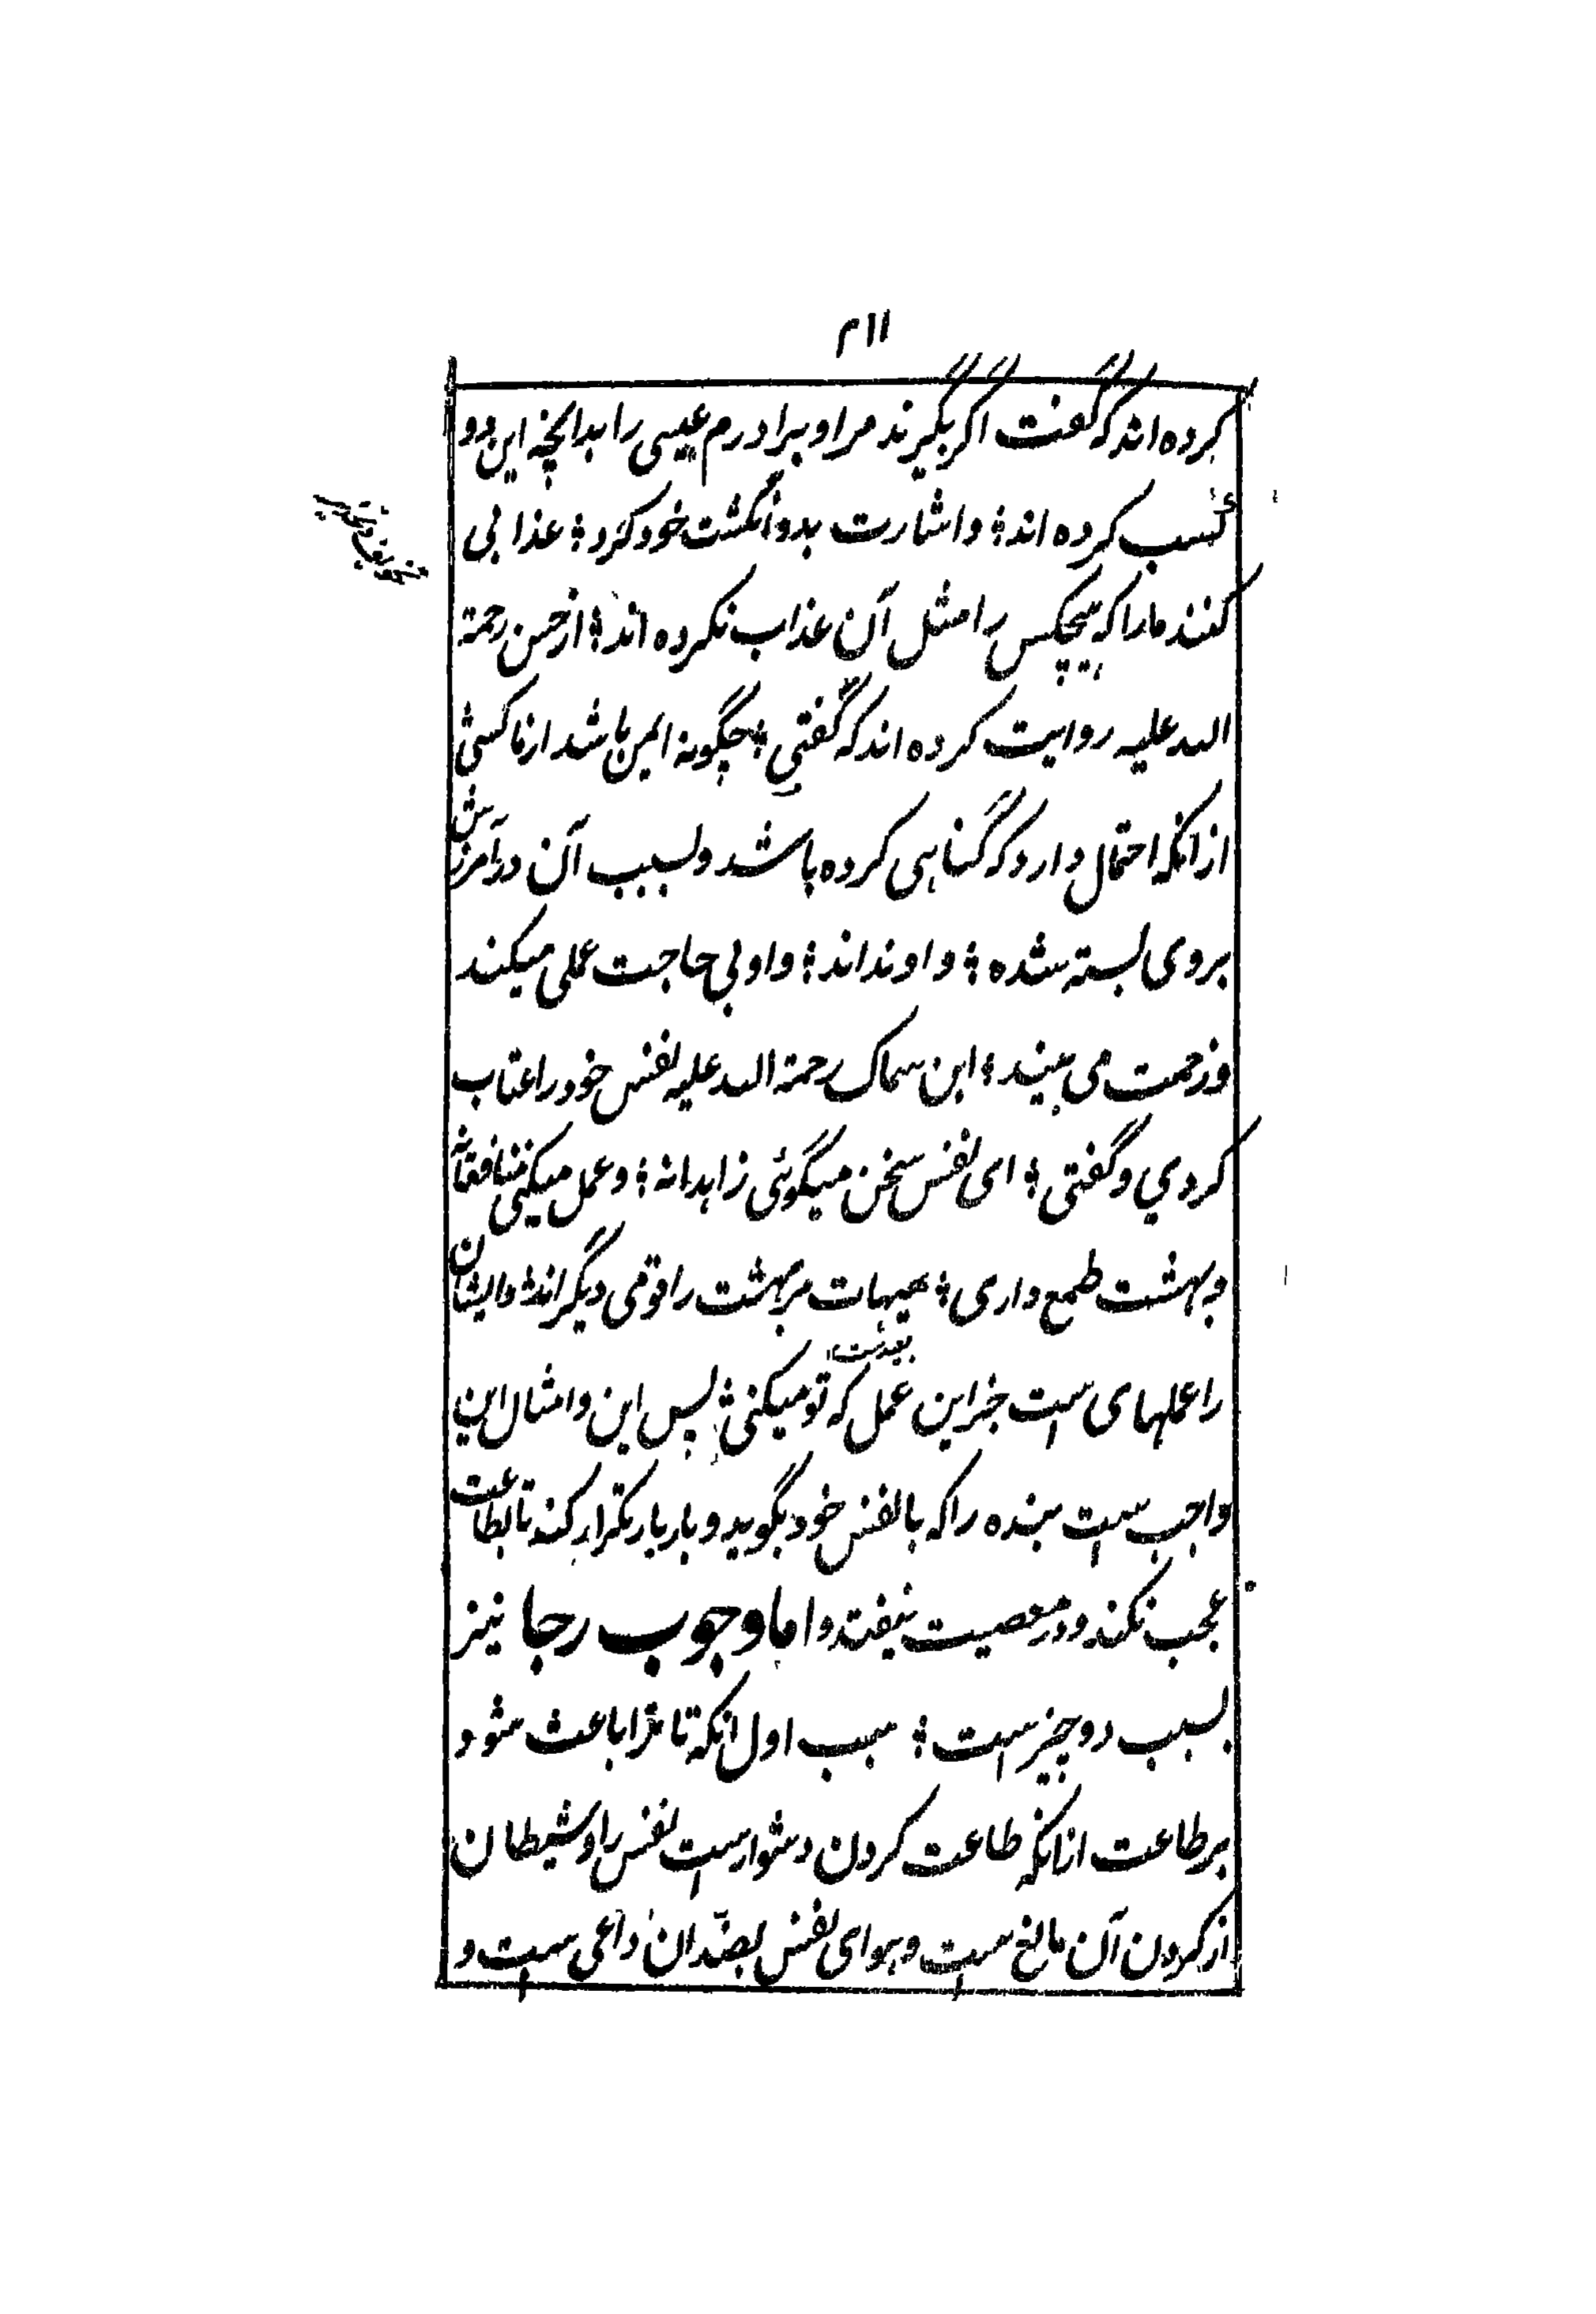 ۲۱۱
کرده اند که گفت اگر بگیرند مرا و برادرم عیسی را بدانچه این دو
کسب کرده اند؛ و اشارت بدو انگشت خود کرد؛ عذابی
کنند ما را که هیچکس را مثل آن عذاب نکرده اند؛ از حسن رحمة
الله علیه روایت کرده اند که گفتی؛ چگونه ایمن باشد از ما کسی
از انکه احتمال دارد که گناهی کرده باشد و بسبب آن در آمرزش
بروی بسته شده؛ و او نداند؛ و او بی حاجت عملی میکند
و زحمت می بیند؛ ابن سماک رحمة الله علیه نفس خود را عتاب
کردي و گفتی؛ ای نفس سخن میگوئی زاهدانه؛ و عمل میکنی منافقانه
و بهشت طمع داری؛ هیهات مر بهشت را قومی دیگر اند؛ و ایشان
را عملهای ست جز این عمل که تو میکنی؛ پس این و امثال این
واجب ست بنده را که با نفس خود بگوید و بار بار تکرار کند تا بطاعت
عجب نکند و در معصیت نیفتد و اما وجوب رجا نیز
بسبب دو چیز ست؛ سبب اول انکه تا ترا باعث شود
بر طاعت از انکه طاعت کردن دشوار ست نفس را و شیطان
از کردن آن مانع ست و هوای نفس بضد آن داعی ست و